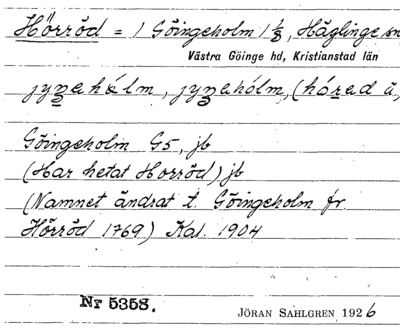 Hörröd = 1 Göingeholm 1 1/8, Häglinge sn
Västra Göinge hd, Kristianstad län
Göingeholm G5, jb
(Har hetat Horröd) jb
(Namnet ändrat t. Göingeholm fr
Hörröd 1769) Kal. 1904
Nr 5358.
JÖRAN SAHLGREN 1926